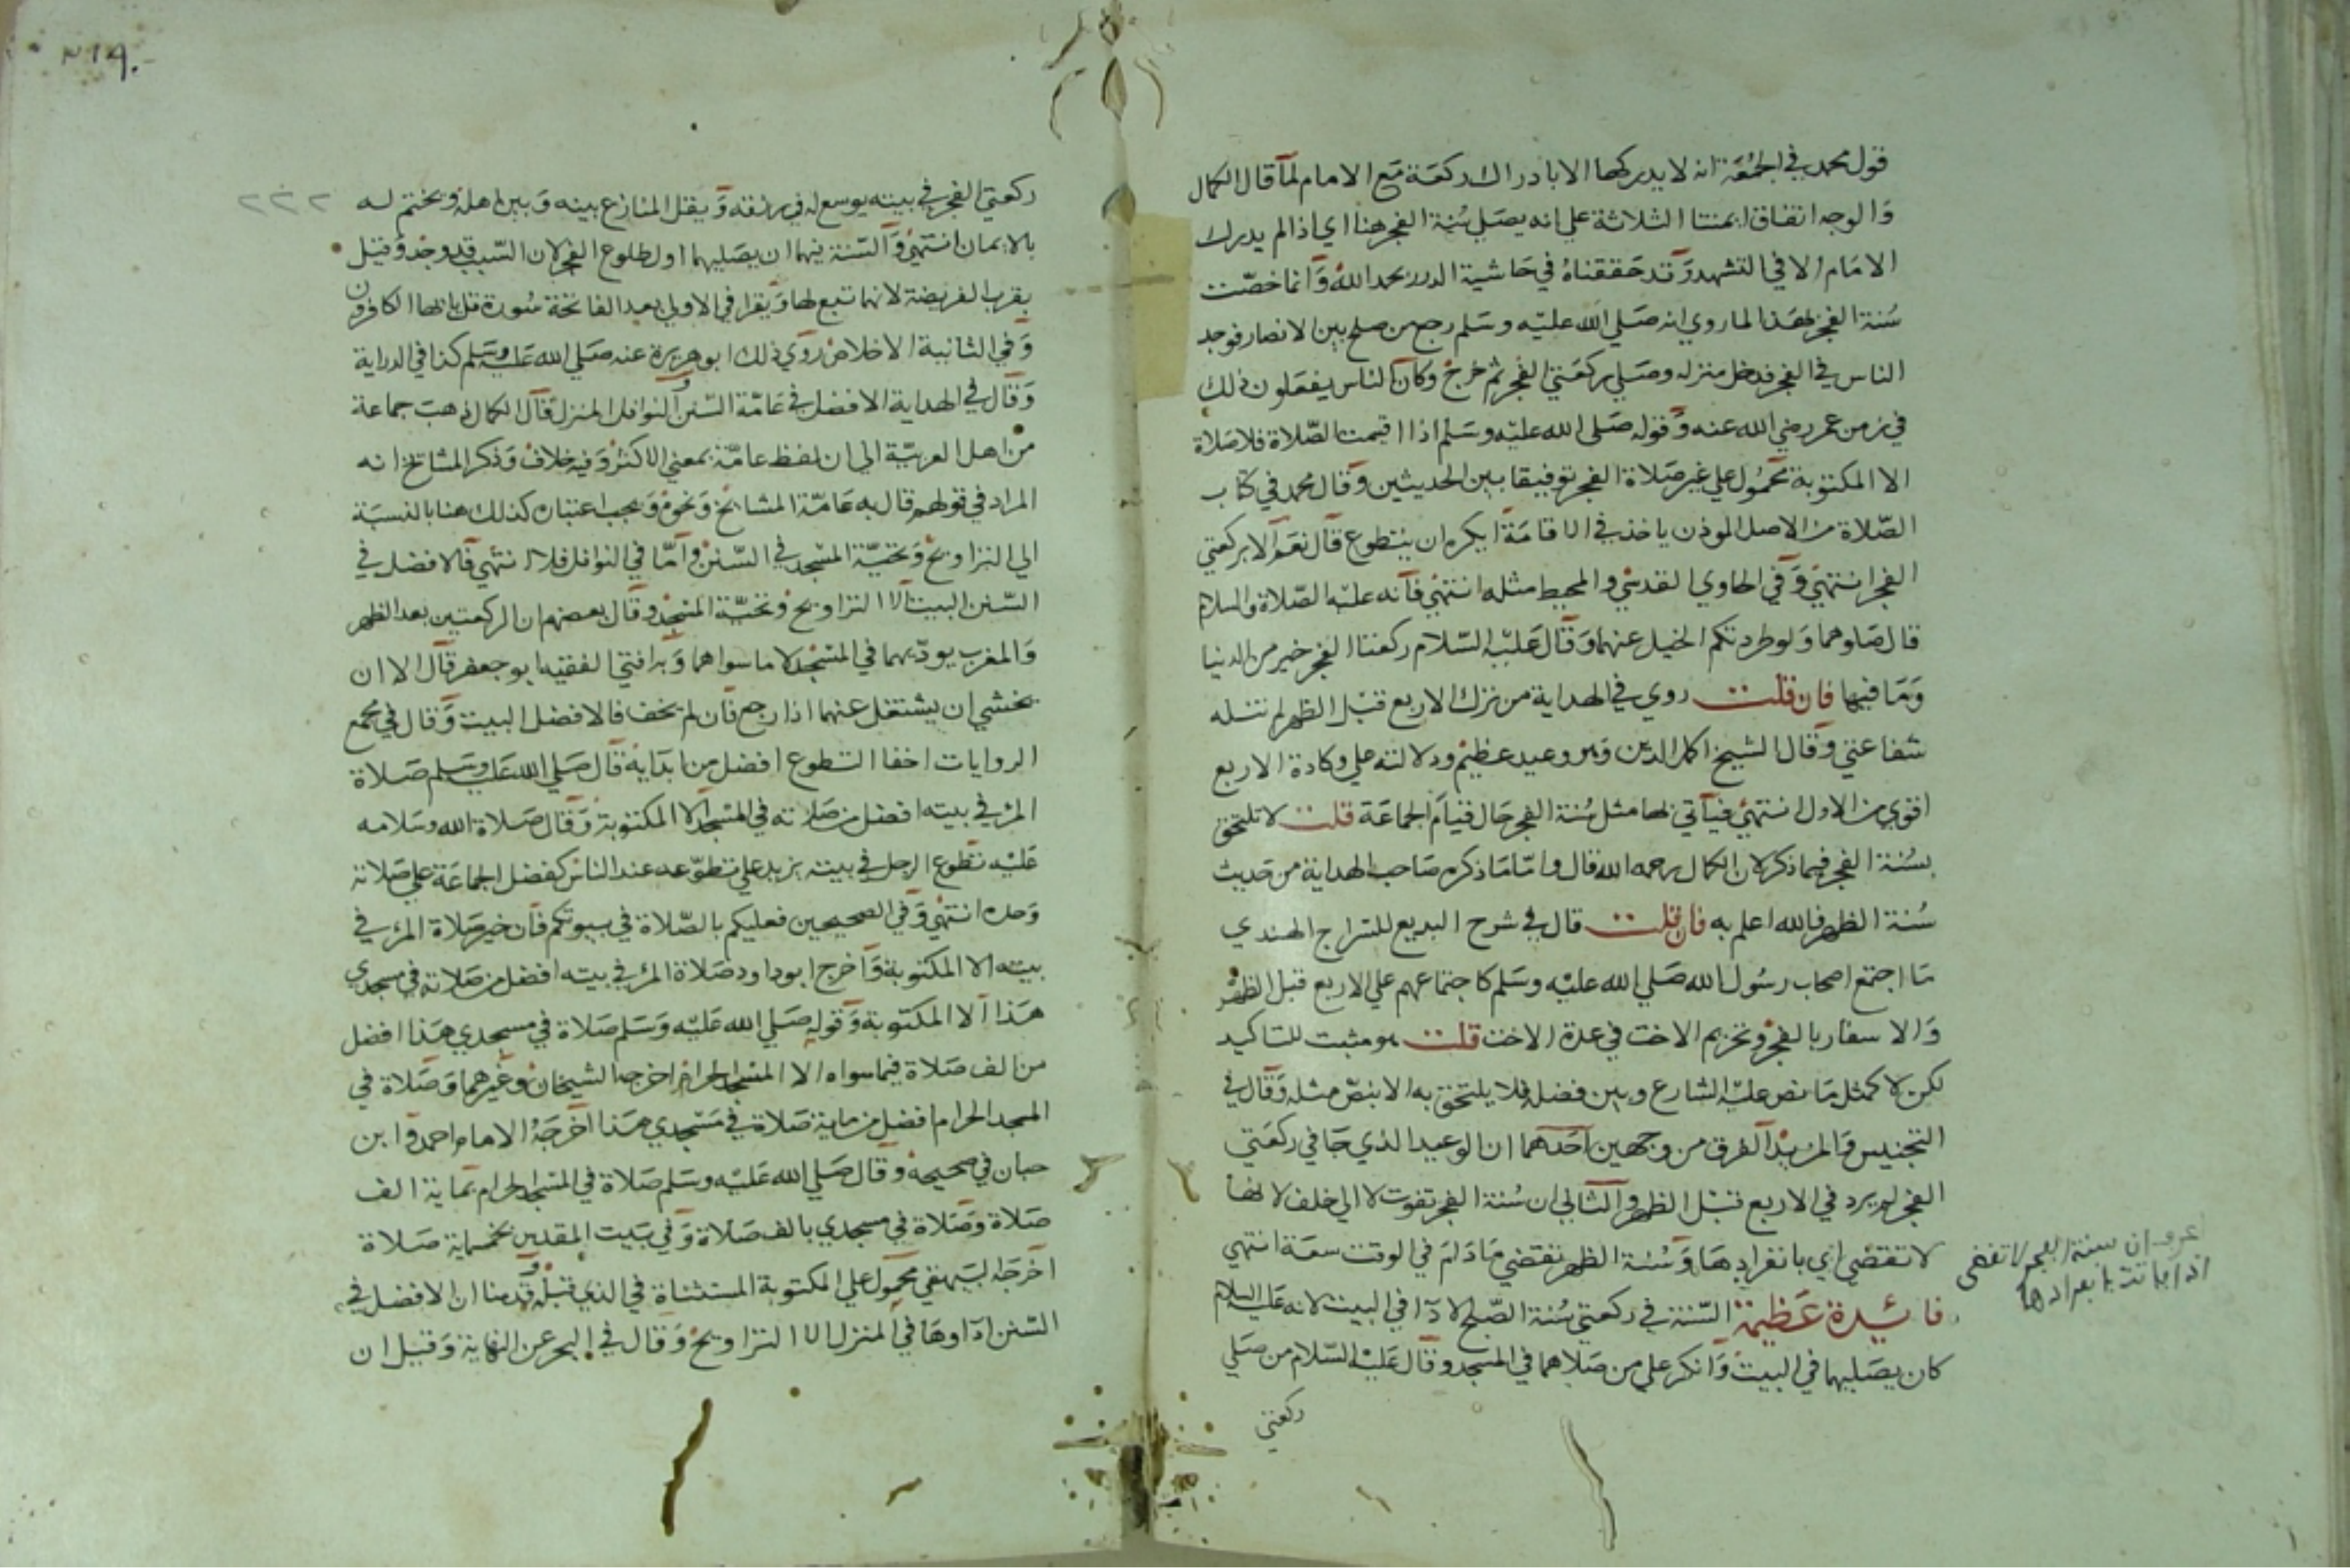 قول محمد في الجمعة انه لا يدركها الا بادراك ركعة مع الامام لما قال الكمال
والوجه اتفاق ايمتنا الثلاثة علي انه يصلي سنة الفجر هنا اي اذا لم يدرك
الامام الا في التشهد وقد حققناه في حاشية الدرر بحمد الله وانما خصت
سنة الفجر بهذا لما روي انه صلي الله عليه وسلم رجع من صلح بين الانصار فوجد
الناس في الفجر فدخل منزله وصلي ركعتي الفجر ثم خرج وكان الناس يفعلون ذلك
في زمن عمر رضي الله عنه وقوله صلي الله عليه وسلم اذا اقيمت الصلاة فلا صلاة
الا المكتوبة محمول علي غير صلاة الفجر توفيقا بين الحديثين وقال محمد في كتاب
الصلاة من الاصل الموذن ياخذ في الاقامة ايكره ان يتطوع قال نعم الا ركعتي
الفجر انتهي وفي الحاوي القدسي والمحيط مثله انتهي فانه عليه الصلاة والسلام
قال صلوهما ولو طردتكم الخيل عنهما وقال عليه السلام ركعتا الفجر خير من الدنيا
وما فيها فان قلت روي في الهداية من ترك الاربع قبل الظهر لم تنله
شفاعتي وقال الشيخ اكمل الدين وهو وعيد عظيم ودلالته علي وكادة الاربع
اقوي من الاول انتهي فيأتي لها مثل سنة الفجر حال قيام الجماعة قلت لا تلتحق
بسنة الفجر فيما ذكر لان الكمال رحمه الله قال واما ما ذكره صاحب الهداية من حديث
سنة الظهر فالله اعلم به فان قلت قال في شرح البديع للسراج الهندي
ما اجتمع اصحاب رسول الله صلي الله عليه وسلم كاجتماعهم علي الاربع قبل الظهر
والاسفار بالفجر وتحريم الاخت في عدة الاخت قلت هو مثبت للتاكيد
لكن لا كمثل ما نص عليه الشارع وبين فضله فلا يلتحق به الا بنص مثله وقال في
التجنيس والمزيد الفرق من وجهين احدهما ان الوعيد الذي جا في ركعتي
الفجر لم يرد في الاربع قبل الظهر والثاني ان سنة الفجر تفوت لا الي خلف لانها
لا تقضي اي بانفرادها وسنة الظهر تقضي ما دام في الوقت سعة انتهي
فائدة عظيمة السنة في ركعتي سنة الصبح الادآ في البيت لانه عليه السلام
كان يصليهما في البيت وانكر علي من صلاهما في المسجد وقال عليه السلام من صلي
ركعتي
اعرف ان سنة الفجر لا تقضى
اذا فاتت بانفرادها
٣١٩
٢٢٢
ركعتي الفجر في بيته يوسع له في رزقه ويقل المنازع بينه وبين اهله ويختم له
بالايمان انتهي والسنة فيهما ان يصليهما اول طلوع الفجر لان السبب قد وجد وقيل
بقرب الفريضة لانها تبع لها ويقرا في الاولي بعد الفاتحة سورة قل ياايها الكافرون
وفي الثانية الاخلاص روي ذلك ابو هريرة عنه صلي الله عليه وسلم كذا في الدراية
وقال في الهداية الافضل في عامة السنن والنوافل المنزل قال الكمال ذهب جماعة
من اهل العربية الي ان لفظ عامة بمعني الاكثر وفيه خلاف وذكر المشائخ انه
المراد في قولهم قال به عامة المشائخ ونحوه ويجب اعتبار كذلك هنا بالنسبة
الي التراويح وتحية المسجد في السنن واما في النوافل فلا انتهي فالافضل في
السنن البيت الا التراويح وتحية المسجد وقال بعضهم ان الركعتين بعد الظهر
والمغرب يوديهما في المسجد لا ما سواهما وبه افتي الفقيه ابو جعفر قال الا ان
يخشي ان يشتغل عنهما اذا رجع فان لم يخف فالافضل البيت وقال في مجمع
الروايات اخفا التطوع افضل من ابدايه قال صلي الله عليه وسلم صلاة
المرء في بيته افضل من صلاته في المسجد الا المكتوبة وقال صلاة الله وسلامه
عليه تطوع الرجل في بيته يزيد علي تطوعه عند الناس كفضل الجماعة علي صلاته
وحده انتهي وفي الصحيحين فعليكم بالصلاة في بيوتكم فان خير صلاة المرء في
بيته الا المكتوبة واخرج ابو داود صلاة المرء في بيته افضل من صلاته في مسجدي
هذا الا المكتوبة وقوله صلي الله عليه وسلم صلاة في مسجدي هذا افضل
من الف صلاة فيما سواه الا المسجد الحرام اخرجه الشيخان وغيرهما وصلاة في
المسجد الحرام افضل من ماية صلاة في مسجدي هذا اخرجه الامام احمد وابن
حبان في صحيحه وقال صلي الله عليه وسلم صلاة في المسجد الحرام بماية الف
صلاة وصلاة في مسجدي بالف صلاة وفي بيت المقدس بخمسماية صلاة
اخرجه البيهقي محمول علي المكتوبة المستثناة في الذي قبله وقدمنا ان الافضل في
السنن اداوها في المنزل الا التراويح وقال في البحر عن النهاية وقيل ان